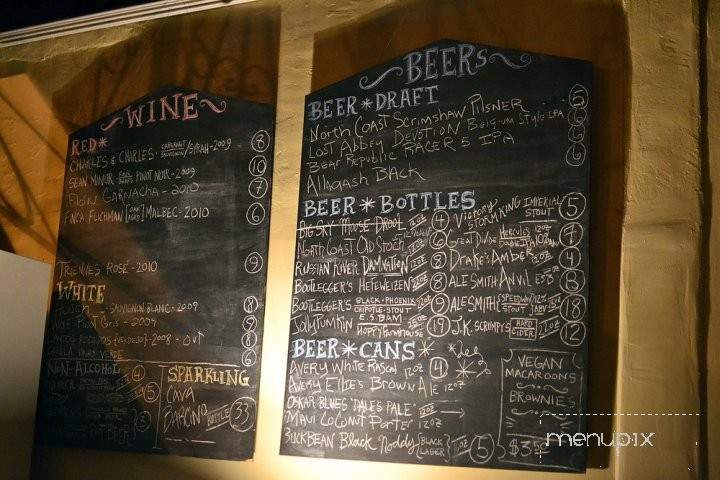 WINE
RED*
CHARLES & CHARLES • CABERNET SAUVIGNON/SYRAH-2009 8
SEAN MINOR PINOT NOIR-2009 10
GARNACHA-2010 7
FINCA FLICHMAN MALBEC-2010 6
TRIENNES ROSÉ-2010 9
WHITE
SAUVIGNON BLANC-2009 8
PINOT GRIS-2009 9
-2008-
VERDE 6
NON-ALCOHOL
4
5
SPARKLING
CAVA
BOTTLE 33
BEERS
BEER*DRAFT
NORTH COAST SCRIMSHAW PILSNER 5
LOST ABBEY DEVOTION BELGIUM STYLE IPA 6
BEAR REPUBLIC RACER 5 IPA 6
ALLAGASH BLACK 6
BEER*BOTTLES
BIG SKY MOOSE DROOL 12OZ 4
NORTH COAST OLD STOCK 6
RUSSIAN RIVER DAMNATION 8
BOOTLEGGER'S HEFEWEIZEN 8
BOOTLEGGER'S BLACK-PHOENIX CHIPOTLE-STOUT 9
E.S.BAM HOPPY FARMHOUSE 19
VICTORY STORM KING IMPERIAL STOUT 5
GREAT DIVIDE HERCULES DOUBLE IPA 12OZ 7
DRAKE'S AMBER 4
ALESMITH ANVIL ESB
ALESMITH SPEEDWAY STOUT 12% ABV 18
J.K. SCRUMPY'S HARD CIDER 22OZ 12
BEER*CANS
AVERY WHITE RASCAL 12OZ 4
AVERY ELLIE'S BROWN ALE 12OZ
OSKAR BLUES "DALE'S PALE" 12OZ
MAUI COCONUT PORTER 12OZ
BUCKBEAN BLACK NODDY BLACK LAGER 5
VEGAN
MACAROONS
BROWNIES
$3.50
menupix